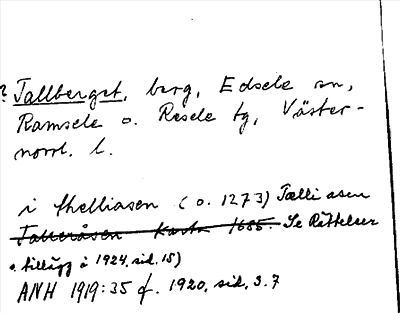 ? Tallberget, berg, Edsele sn,
Ramsele o. Resele tg, Väster-
norrl. l.
i thelliasen (o. 1273) Tælliasen
Talleråsen Karta 1685. Se Rättelser
o. tillägg å 1924, sid. 15)
ANH 1919:35 f. 1920, sid. 3.7